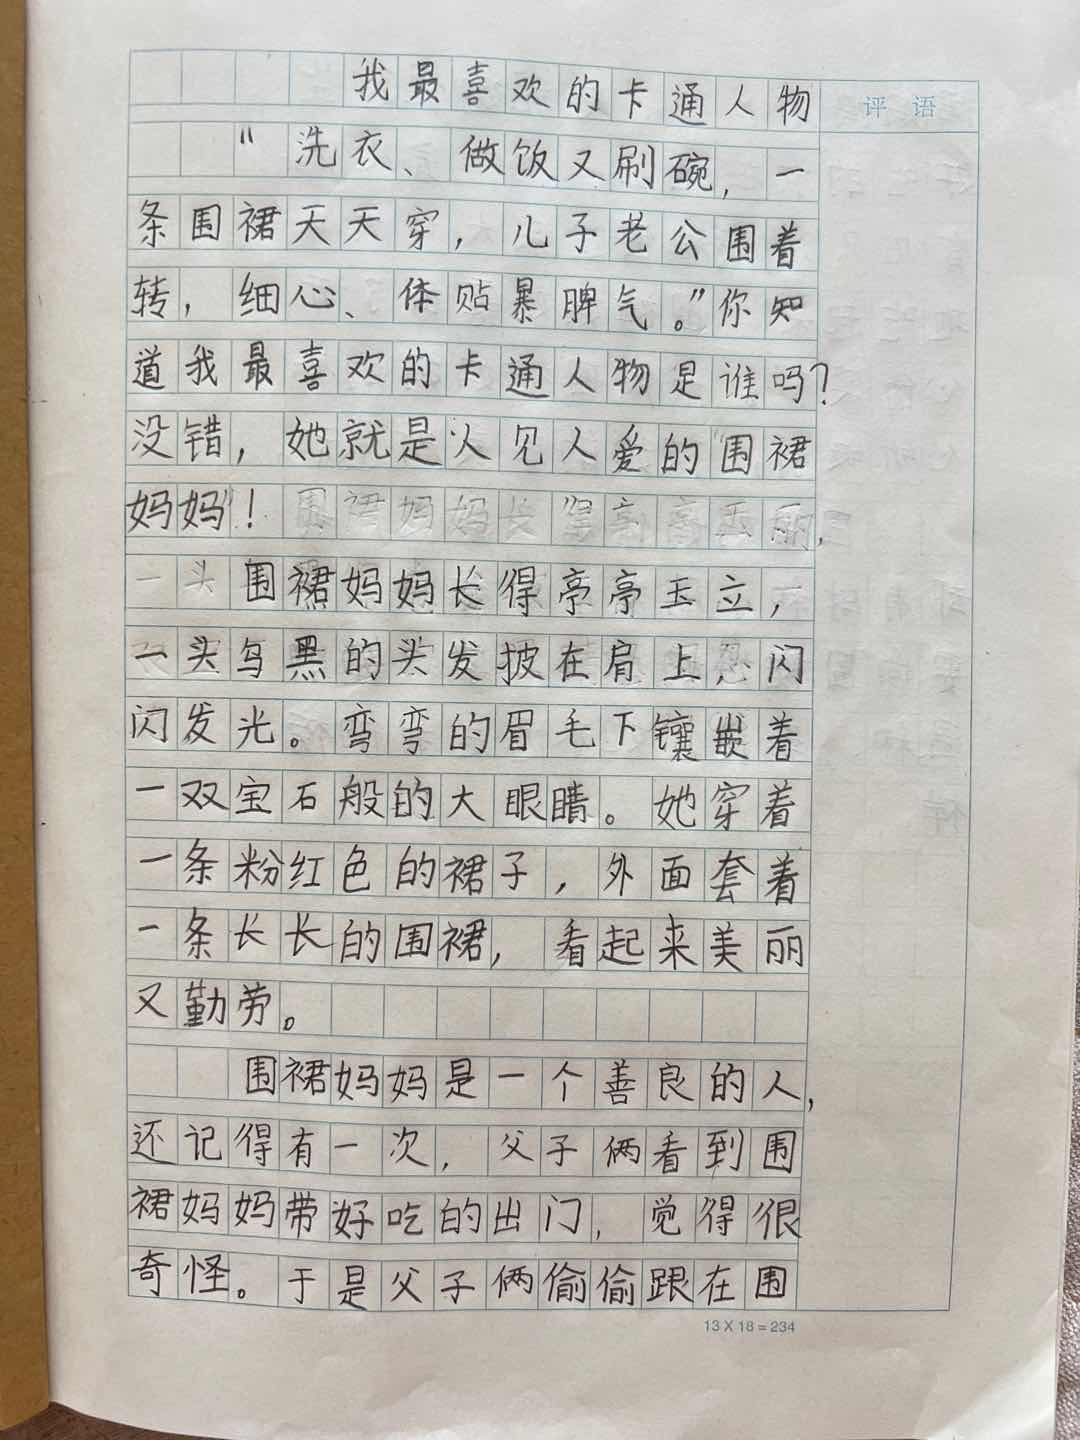 我最喜欢的卡通人物
评语
“洗衣、做饭又刷碗，一
条围裙天天穿，儿子老公围着
转，细心、体贴暴脾气。”你知
道我最喜欢的卡通人物是谁吗？
没错，她就是人见人爱的围裙
妈妈”！
一头围裙妈妈长得亭亭玉立，
一头乌黑的头发披在肩上，闪
闪发光。弯弯的眉毛下镶嵌着
一双宝石般的大眼睛。她穿着
一条粉红色的裙子，外面套着
一条长长的围裙，看起来美丽
又勤劳。
围裙妈妈是一个善良的人，
还记得有一次，父子俩看到围
裙妈妈带好吃的出门，觉得很
奇怪。于是父子俩偷偷跟在围
13 X 18 = 234